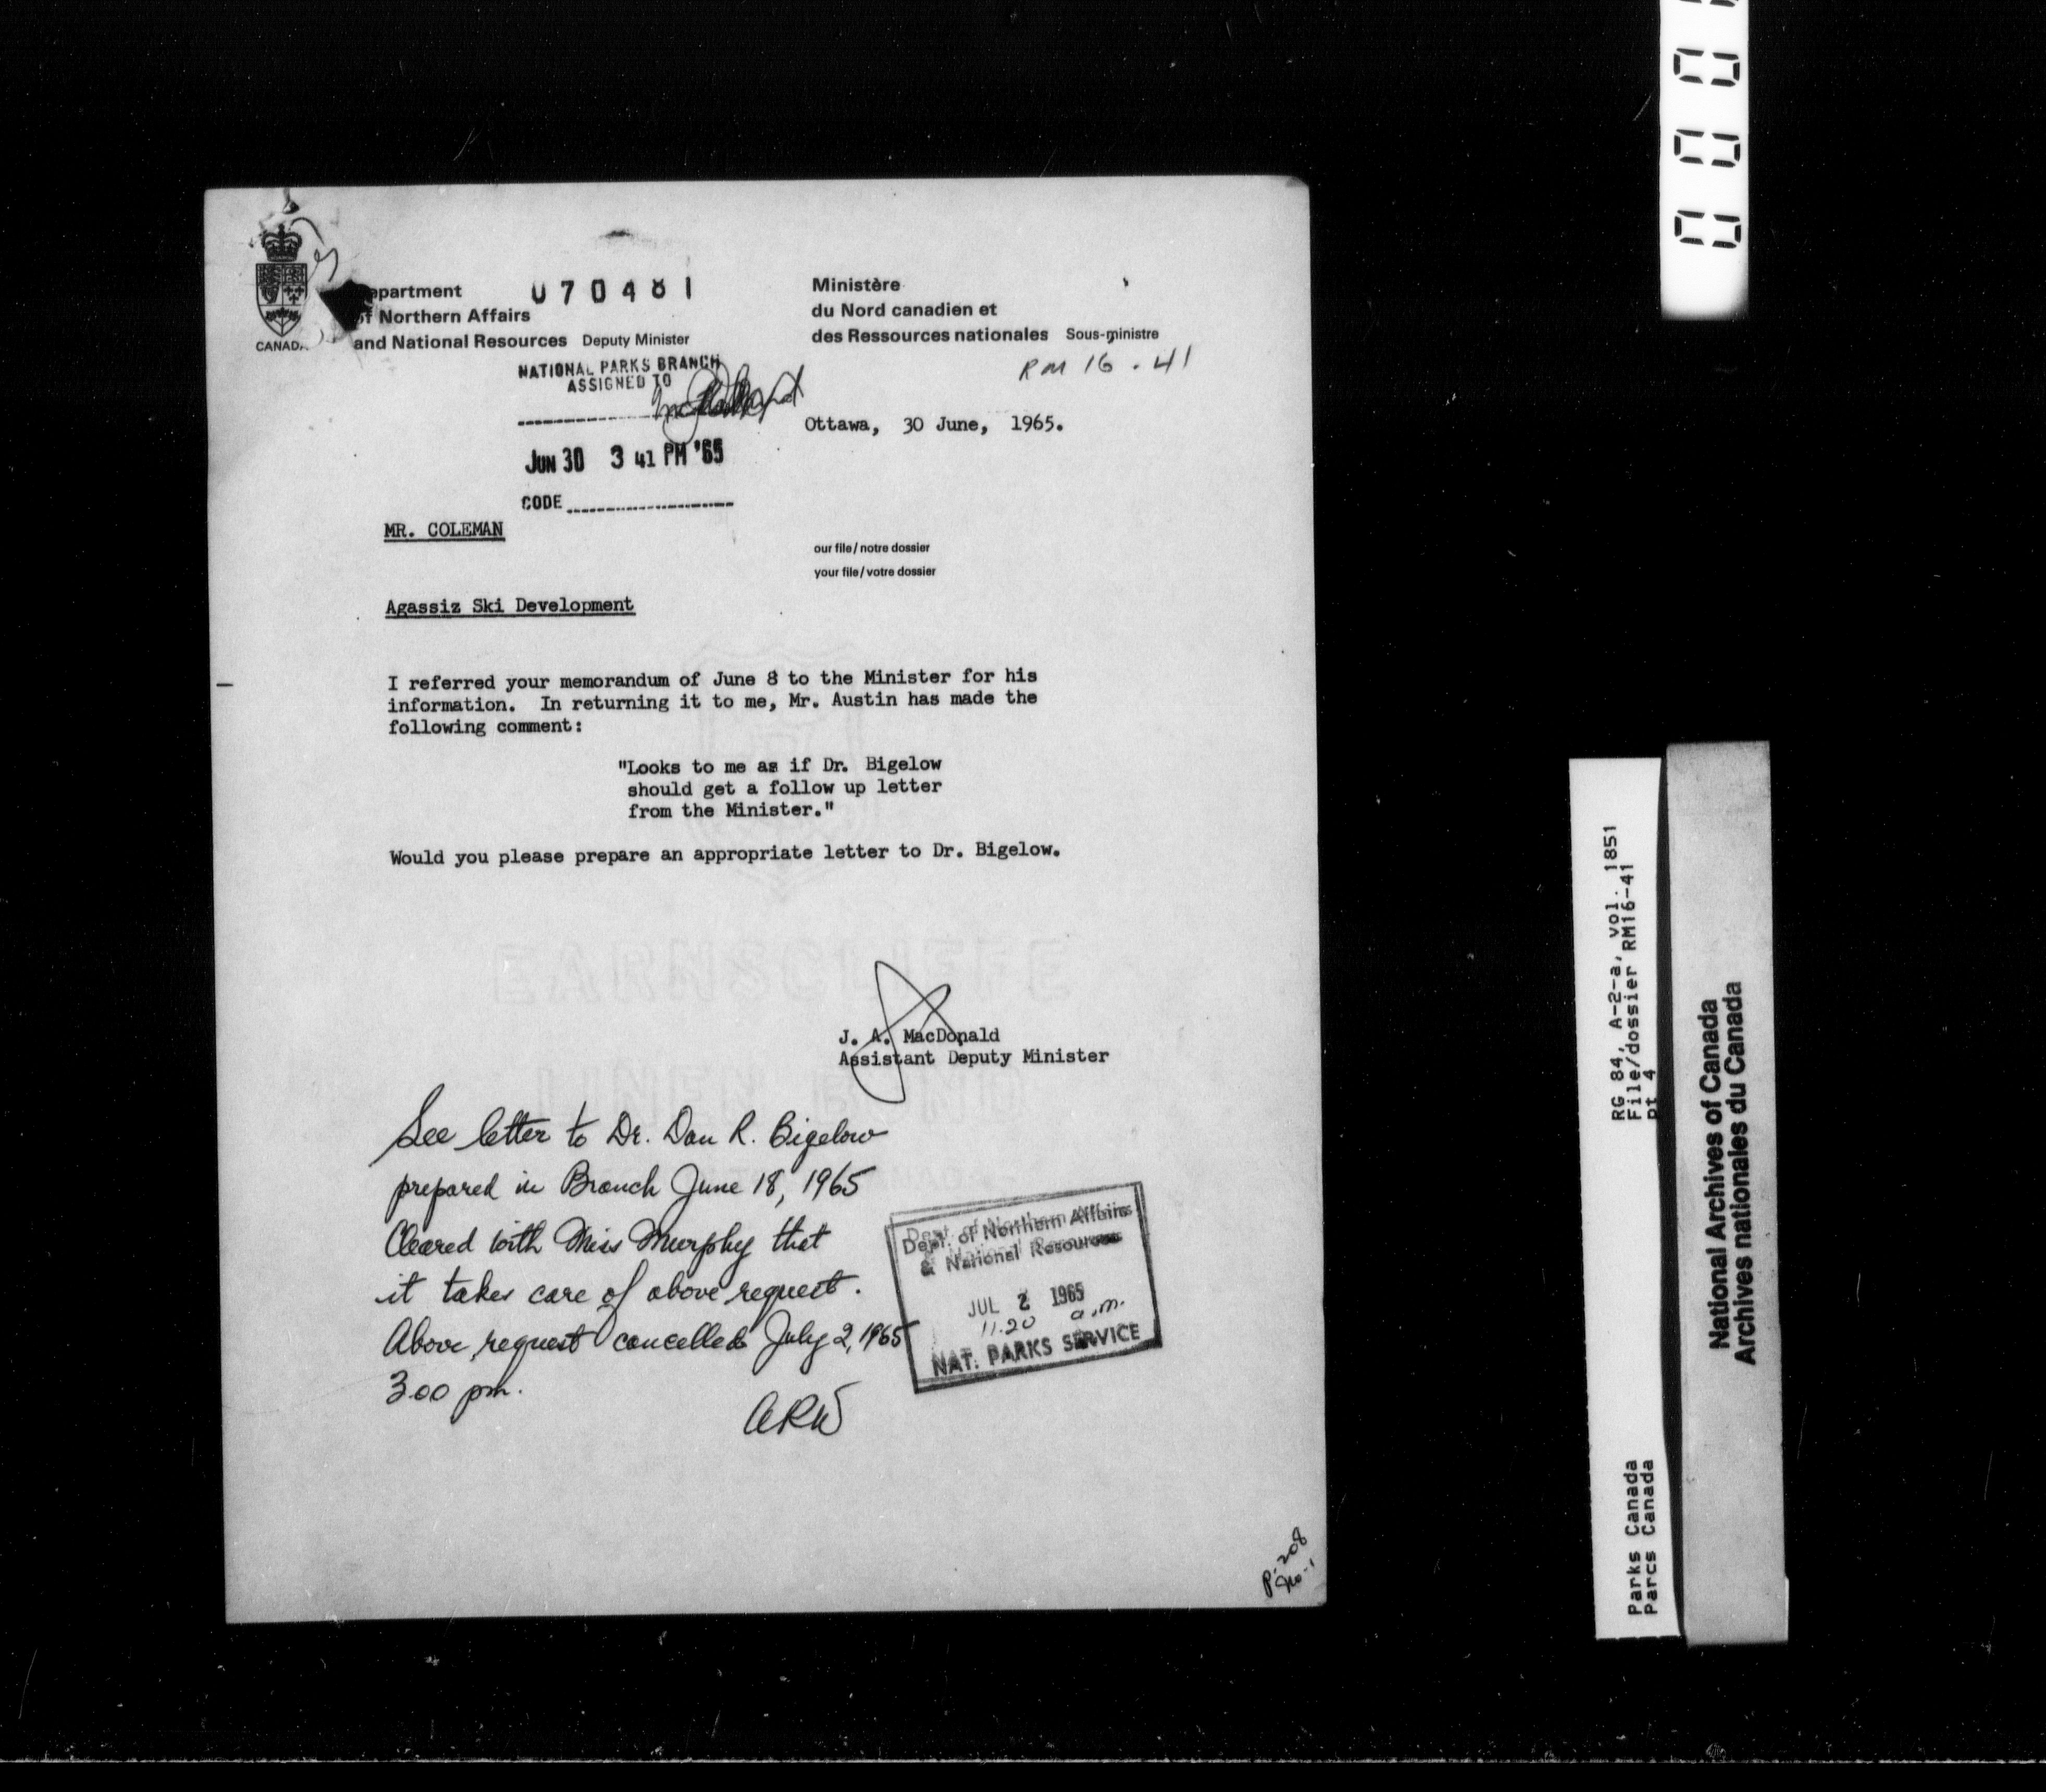 070481
Department
of Northern Affairs
and National Resources Deputy Minister
Ministère
du Nord canadien et
des Ressources nationales Sous-ministre
CANADA
RM 16 . 41
NATIONAL PARKS BRANCH
ASSIGNED TO
Ottawa, 30 June, 1965.
JUN 30 3 41 PM '65
CODE
MR. COLEMAN
our file/notre dossier
your file/votre dossier
Agassiz Ski Development
I referred your memorandum of June 8 to the Minister for his
information. In returning it to me, Mr. Austin has made the
following comment:
"Looks to me as if Dr. Bigelow
should get a follow up letter
from the Minister."
Would you please prepare an appropriate letter to Dr. Bigelow.
EARNSCLIFFE
LINEN BOND
J. A. MacDonald
Assistant Deputy Minister
See letter to Dr. Dan R. Bigelow
prepared in Branch June 18, 1965
Cleared with Miss Murphy that
it takes care of above request.
Above request cancelled July 2, 1965
3.00 pm.
ARW
Dept. of Northern Affairs
& National Resources
JUL 2 1965
11.20 a.m.
NAT. PARKS SERVICE
P-208
No-1
RG 84, A-2-a, vol. 1851
File/dossier RM16-41
pt 4
Parks Canada
Parcs Canada
National Archives of Canada
Archives nationales du Canada